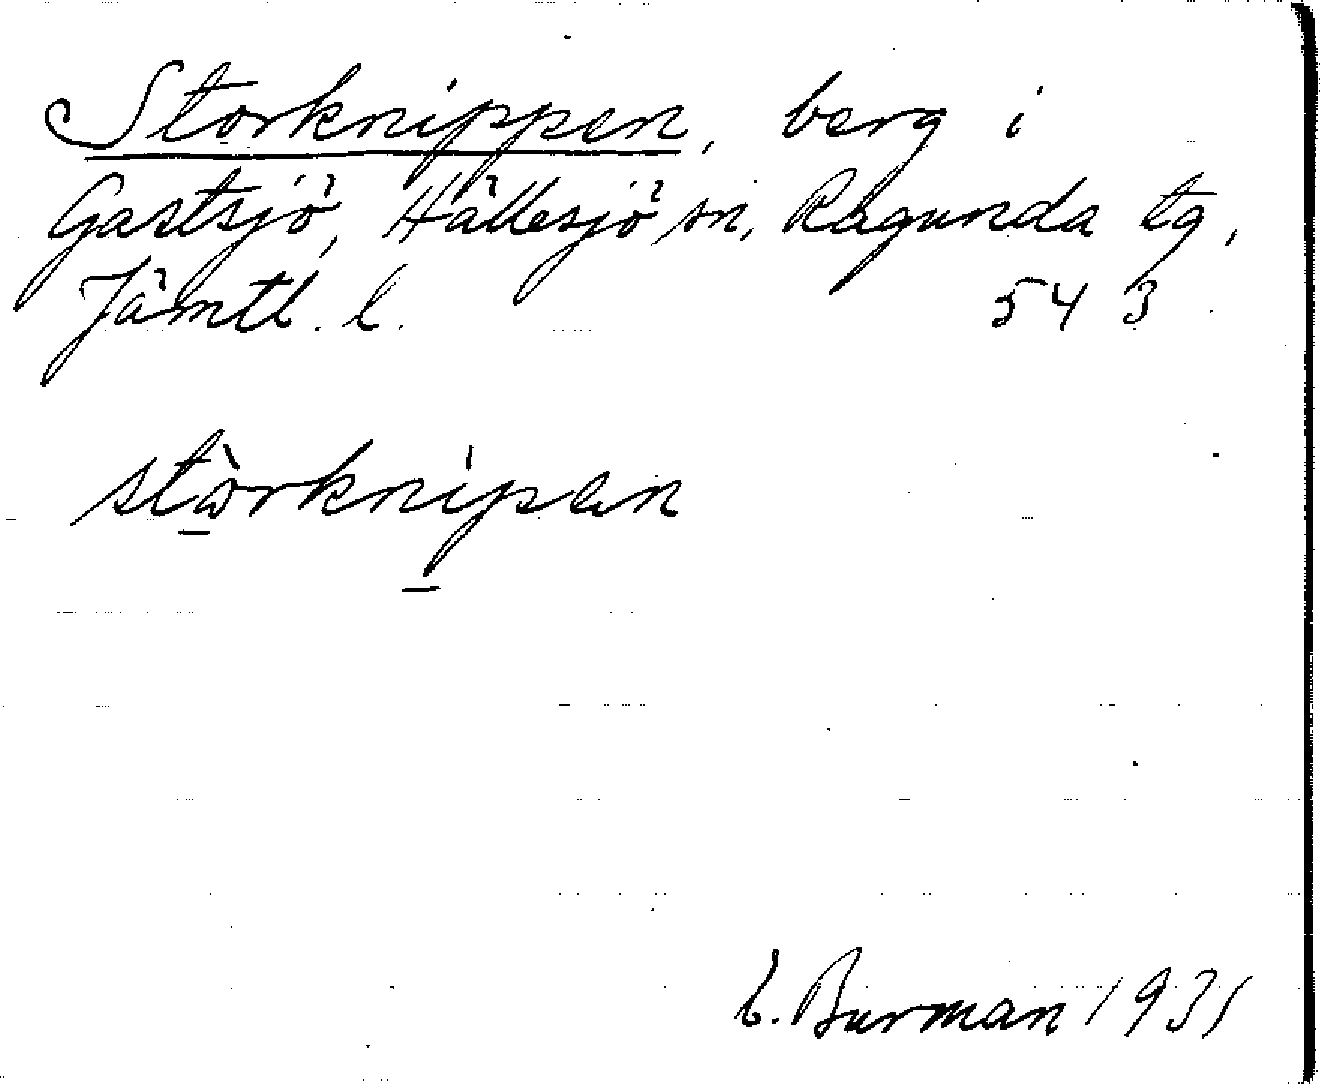 Storknippen, berg i
Gastsjö, Hällesjö sn, Ragunda tg,
Jämtl. l. 54 3
stòrknipen
E. Burman 1931